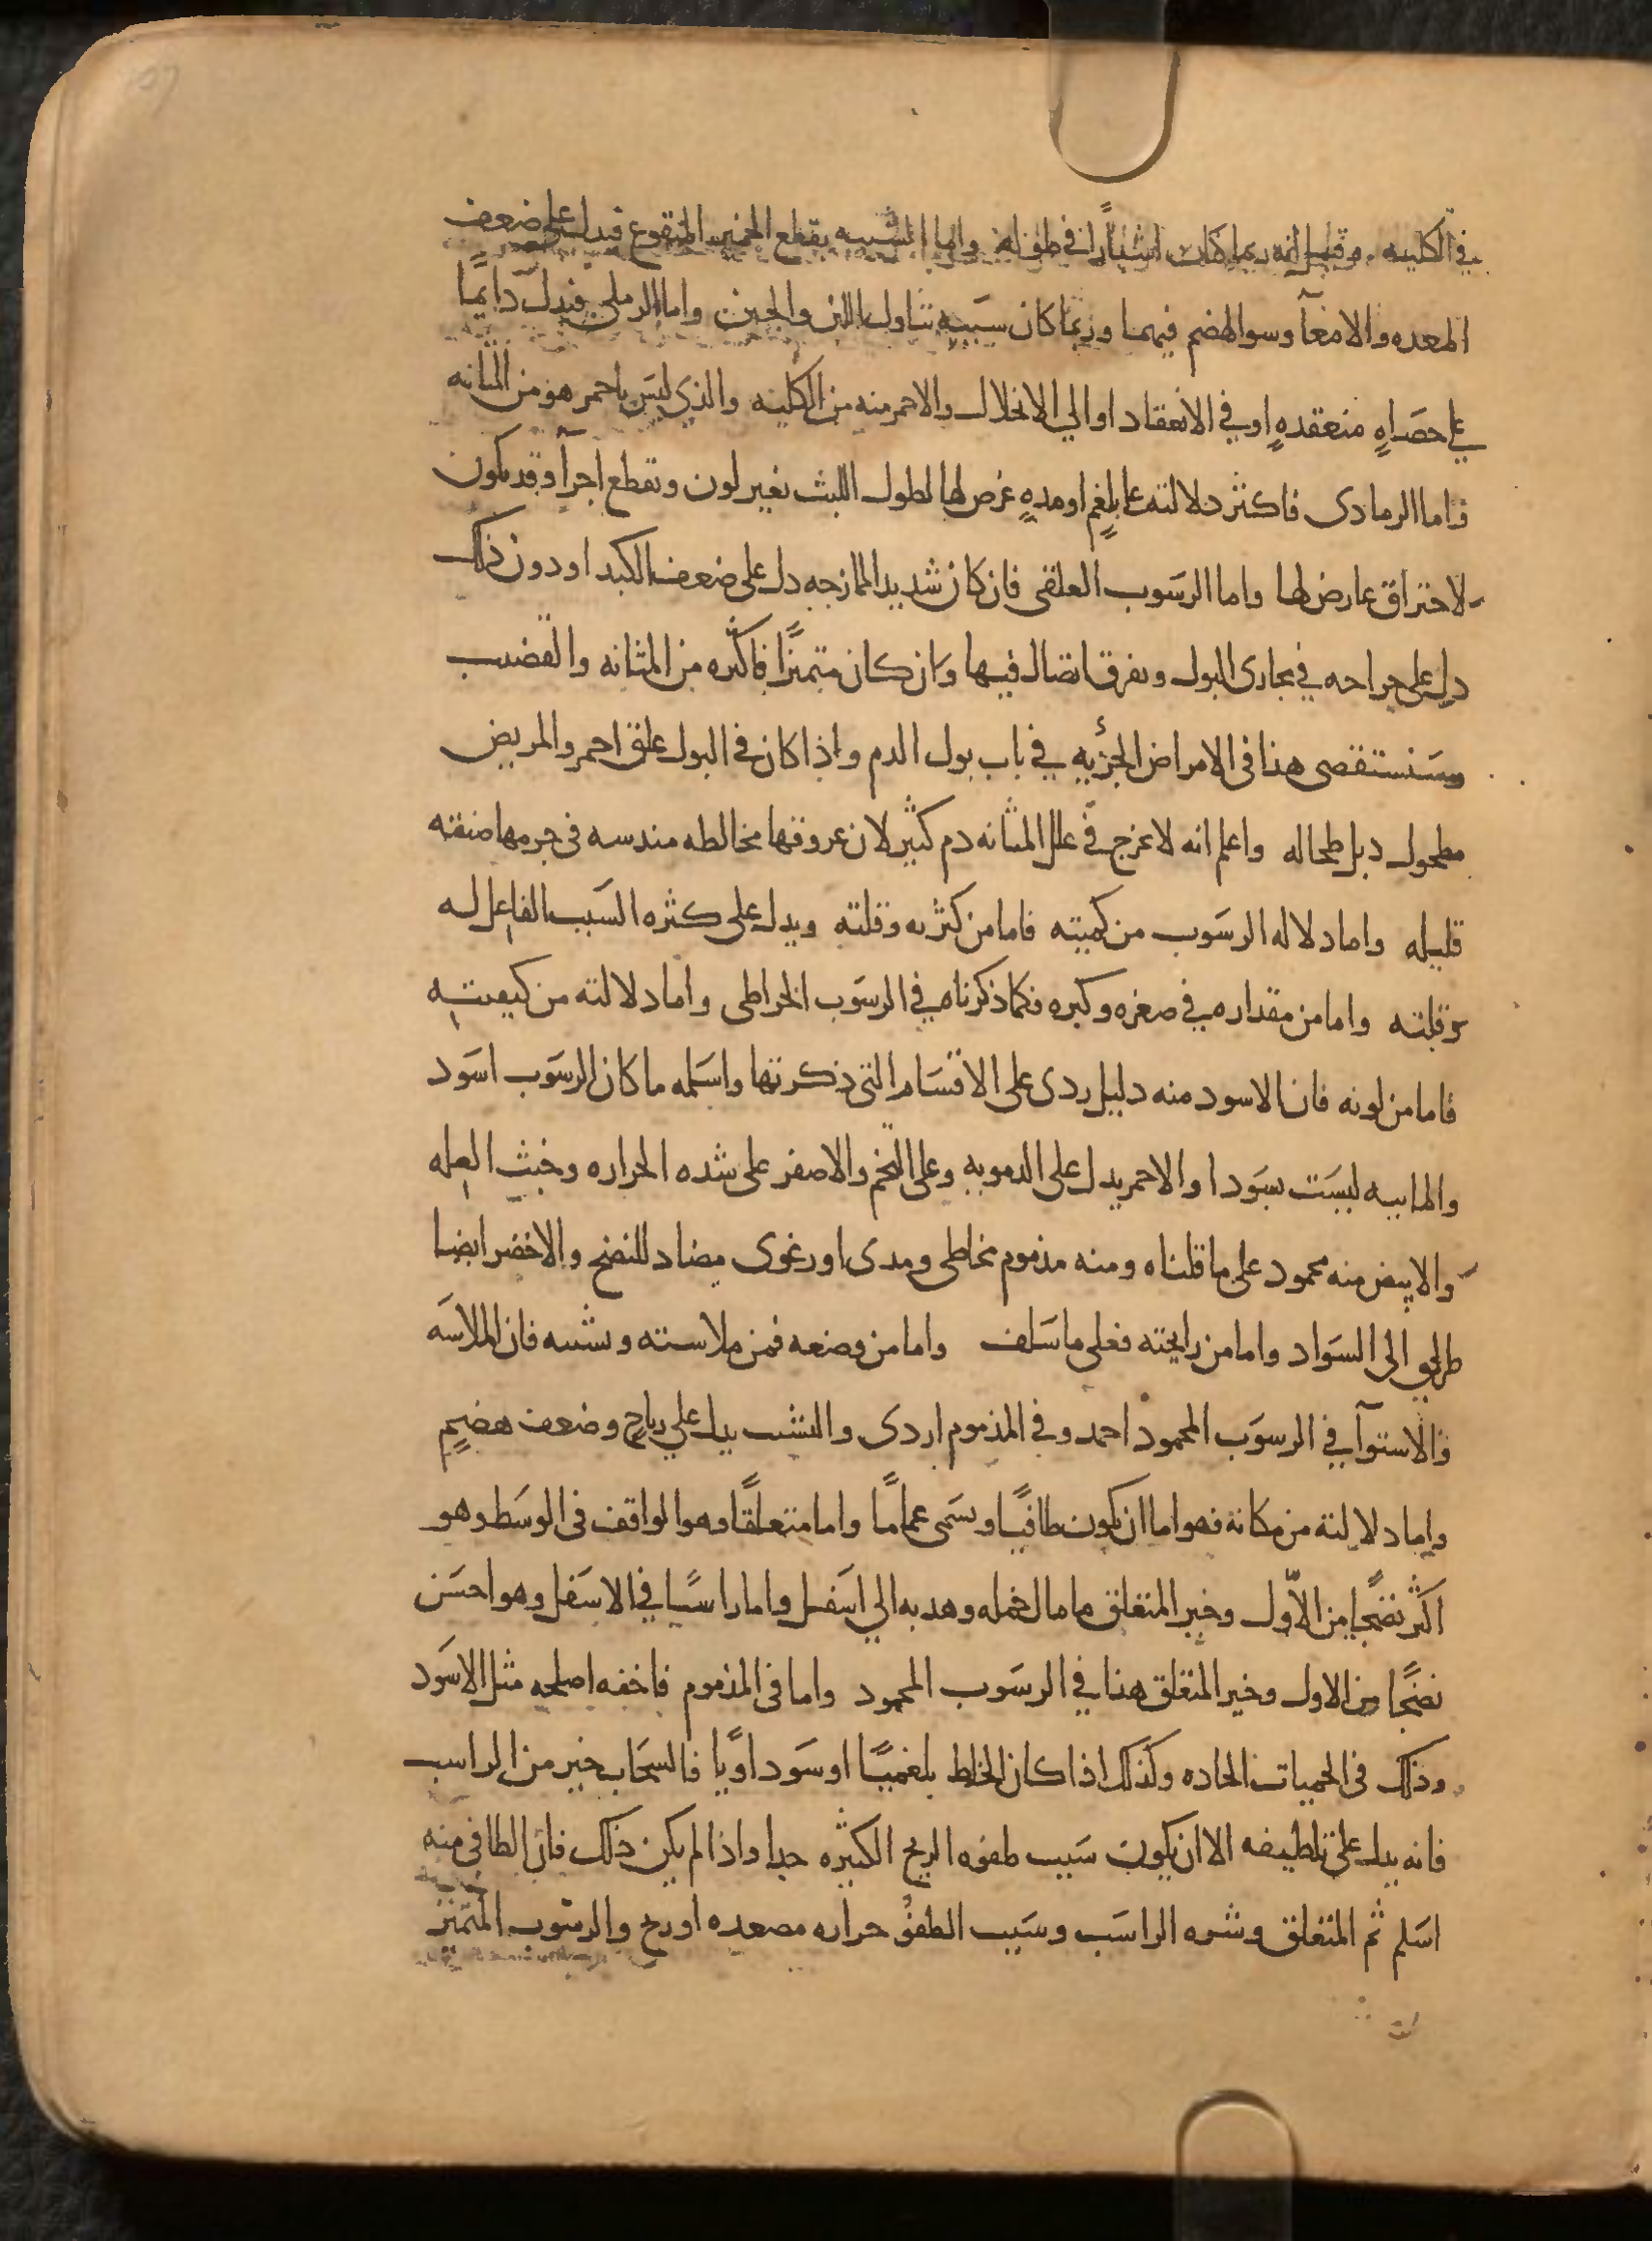 في الكليه وقيل انه ربما كان اشبارا في طوله واما الشبيه بقطع الخمير المنقوع فيدل على ضعف
المعده والامعآ وسو الهضم فيهما وربما كان سببه تناول اللبن والجبن واما الرملي فيدل دايمًا
علي حصاهٍ منعقدهٍ او في الانعقاد او الي الانحلال والاحمر منه من الكليه والذي ليس باحمر هو من المثانه
فاما الرمادى فاكثر دلالته علي بلغمٍ او مدهٍ عرض لها لطول اللبث تغير لون وتقطع اجزآ وقد يكون
لاحتراق عارض لها واما الرسوب العلقى فان كان شديد الممازجه دل على ضعف الكبد او دون ذلك
دل على جراحه في مجارى البول وتفرق اتصال فيها وان كان متميزًا فاكثره من المثانه والقضيب
وسنستقصى هذا فى الامراض الجزئيه في باب بول الدم واذا كان في البول علق احمر والمريض
مطحول دبل طحاله واعلم انه لا يخرج في علل المثانه دم كثير لان عروقها مخالطه مندسه فى جرمها ضيقه
قليله واما دلاله الرسوب من كميته فاما من كثرته وقلته ويدل على كثره السبب الفاعل له
وقلته واما من مقداره في صغره وكبره فكما ذكرناه في الرسوب الخراطى واما دلالته من كيفيته
فاما من لونه فان الاسود منه دليل ردى على الاقسام التى ذكرتها واسلمه ما كان الرسوب اسود
والماييه ليست بسودا والاحمر يدل على الدمويه وعلى التخم والاصفر على شده الحراره وخبث العله
والابيض منه محمود على ما قلناه ومنه مذموم مخاطى ومدى او رغوى مضاد للنضج والاخضر ايضا
طريق الى السواد واما من رايحته فعلى ما سلف واما من وضعه فمن ملاسته وتشتته فان الملاسه
والاستوآ في الرسوب المحمود احمد وفي المذموم اردى والتشتت يدل علي رياحٍ وضعف هضمٍ
واما دلالته من مكانه فهو اما ان يكون طافيًا ويسمى غمامًا واما متعلقًا وهو الواقف فى الوسط وهو
اكثر نضجًا من الاول وخير المتعلق ما مال خمله وهدبه الي اسفل واما راسبًا في الاسفل وهو احسن
نضجًا من الاول وخير المتعلق هذا في الرسوب المحمود واما فى المذموم فاخفه اصلحه مثل الاسود
وذلك فى الحميات الحاده وكذلك اذا كان الخلط بلغميًا او سوداويا فالسحاب خير من الراسب
فانه يدل على تلطيفه الا ان يكون سبب طفوه الريح الكثيره جدا واذا لم يكن ذلك فان الطافى منه
اسلم ثم المتعلق وشره الراسب وسبب الطفو حراره مصعده او ريح والرسوب المتميز